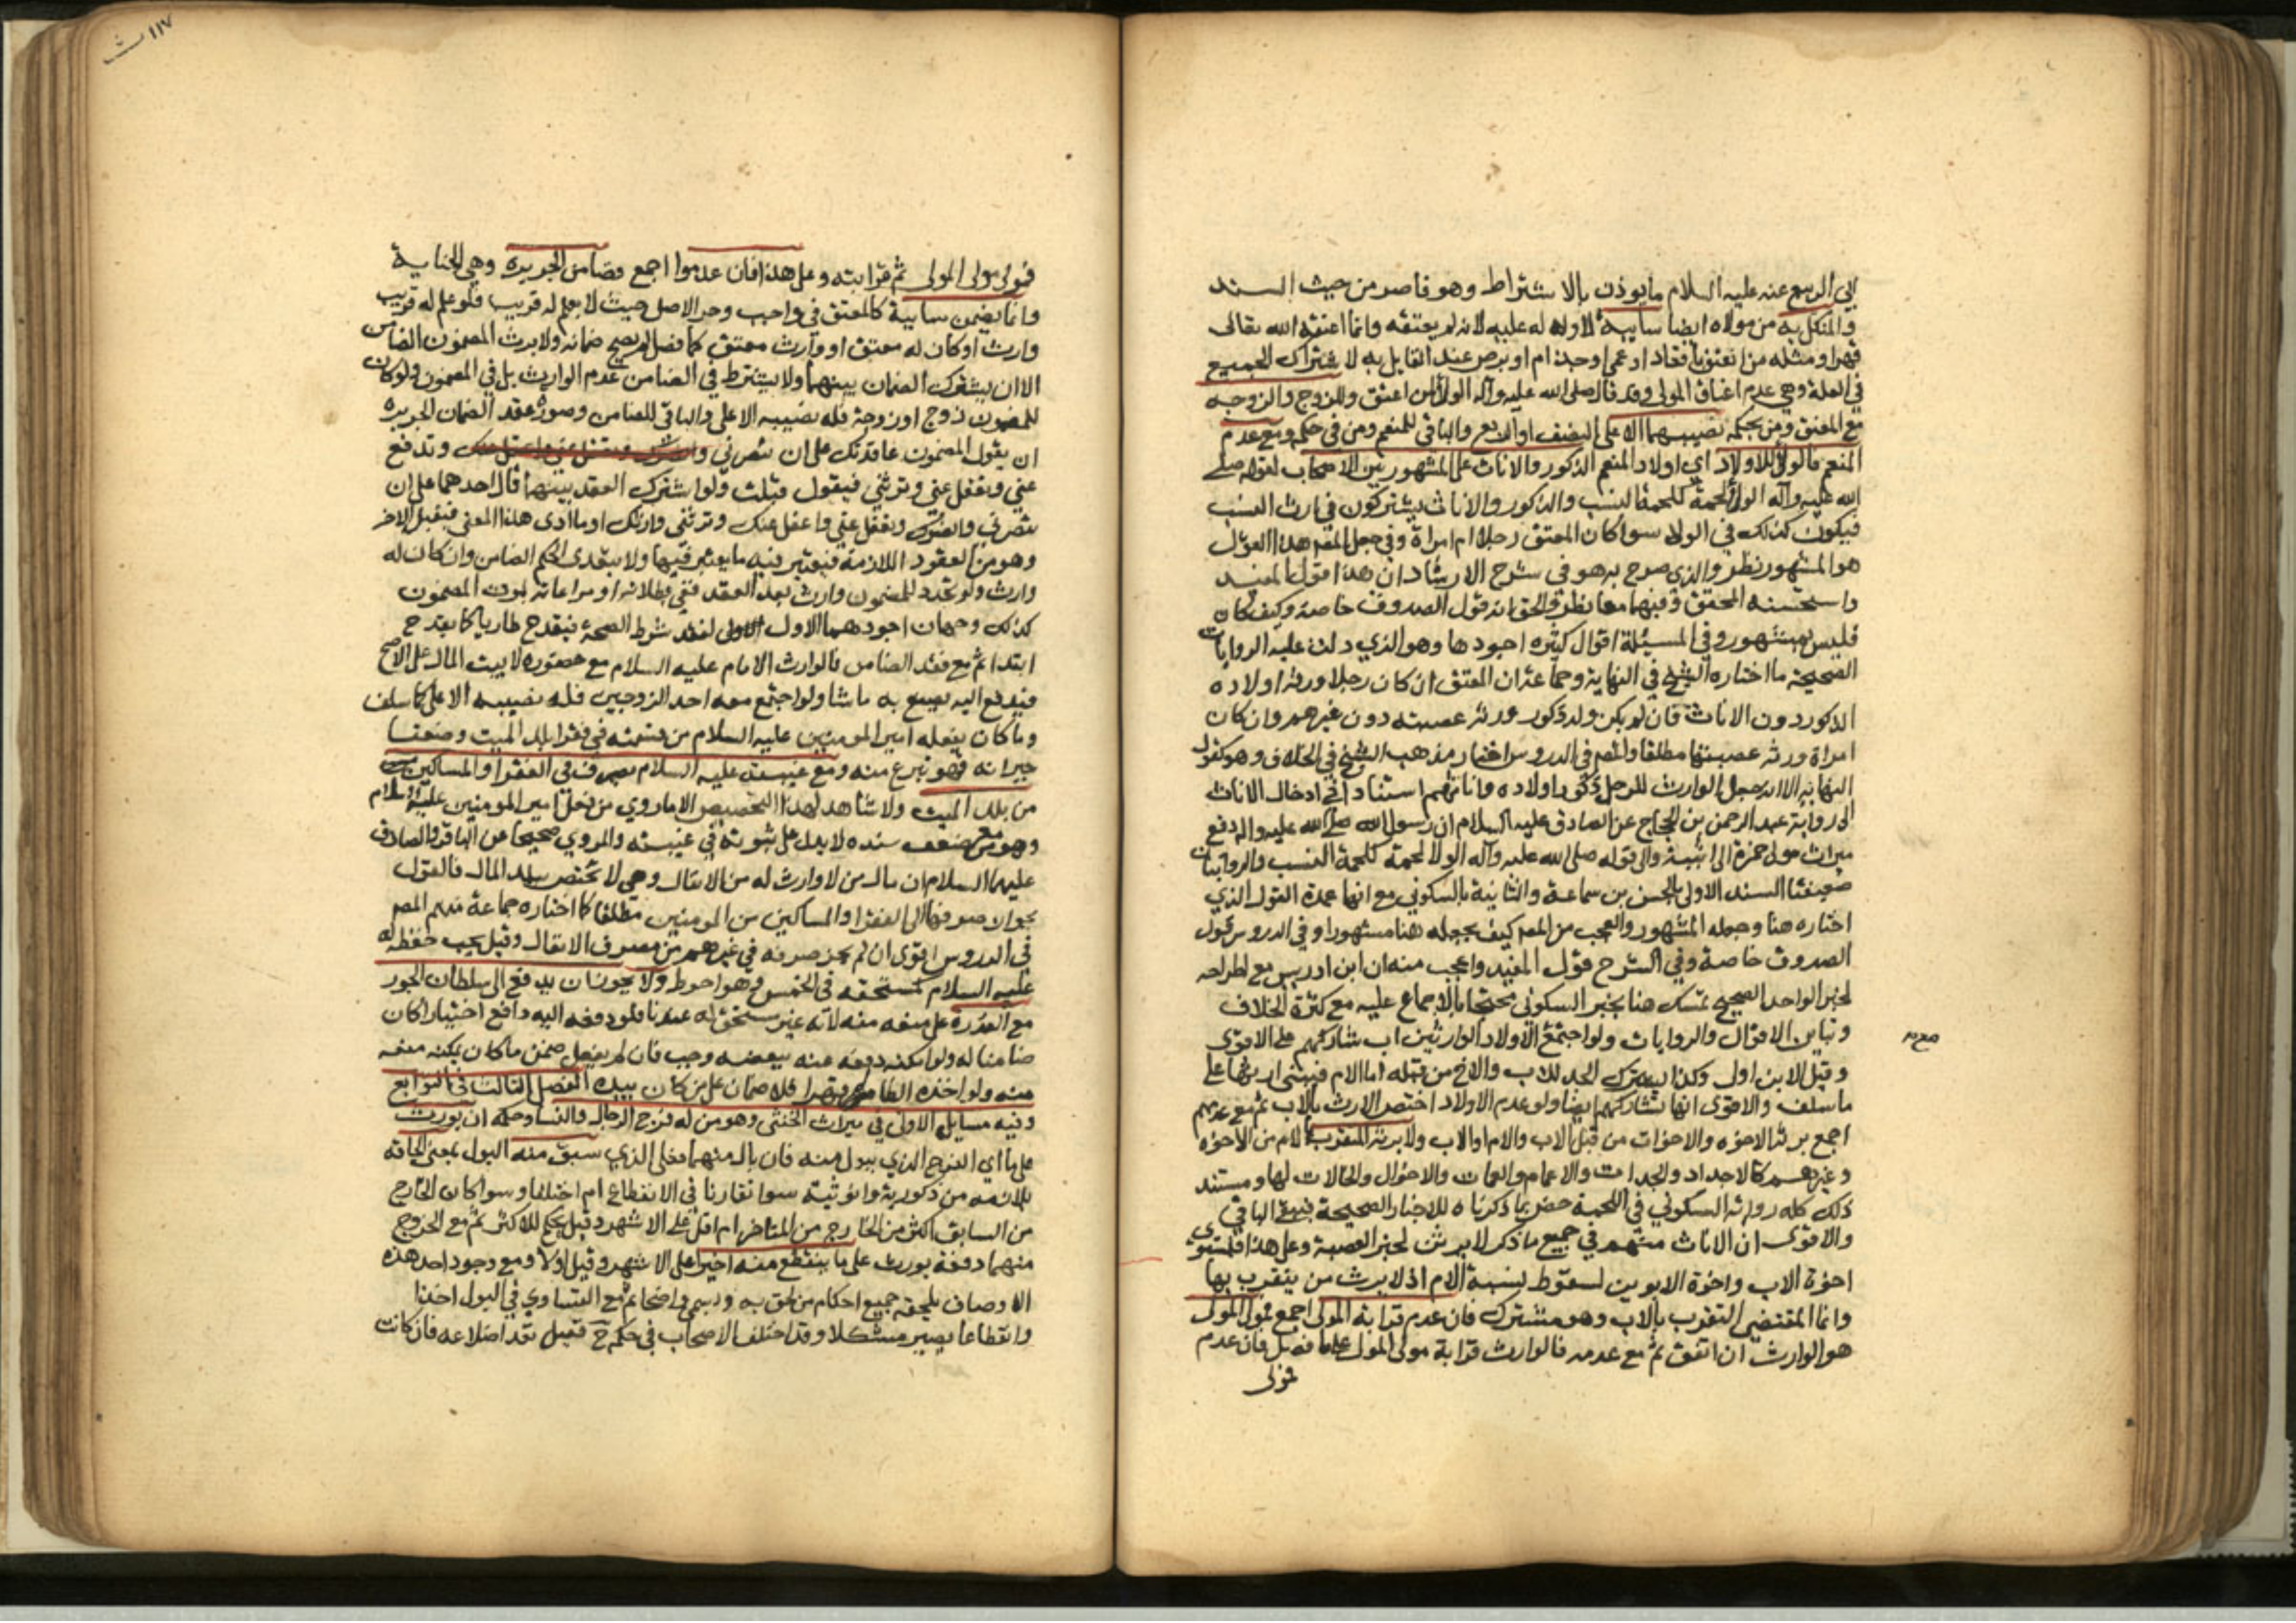 ابي الربيع عنه عليه السلام ما يوذن بالاشتراط وهو قاصر من حيث السند
والمنكل به من مولاه ايضا سايبة لا ولا له عليه لانه لم يعتقه وانما اعتقه الله تعالى
قهرا ومثله من انعتق باقعاد او عمى او جذام او برص عند القايل به لاشتراك الجميع
في العلة وهي عدم اعتاق المولى وقد قال صلى الله عليه وآله الولا لمن اعتق وللزوج والزوجة
مع المعتق ومن بحكمه نصيبهما الاعلى النصف او الربع والباقي للمنعم ومن في حكمه ومع عدم
المنعم فالولا للاولاد اي اولاد المنعم الذكور والاناث على المشهور بين الاصحاب لقوله صلى
الله عليه وآله الولا لحمة كلحمة النسب والذكور والاناث يشتركون في ارث النسب
فيكون كذلك في الولا سوا كان المعتق رجلا ام امراة وفي جعل المص هذا القول
هو المشهور نظر والذي صرح به هو في شرح الارشاد ان هذا قول المفيد
واستحسنه المحقق وفيهما معا نظر والحق انه قول الصدوق خاصة وكيف كان
فليس بمشهور وفي المسئلة اقوال كثيره اجودها وهو الذي دلت عليه الروايات
الصحيحة ما اختاره الشيخ في النهاية وجماعة ان المعتق ان كان رجلا ورثه اولاده
الذكور دون الاناث فان لم يكن ولد ذكور ورثه عصبته دون غيرهم وان كان
امراة ورثه عصبتها مطلقا والمص في الدروس اختار مذهب الشيخ في الخلاف وهو كقول
النهاية الا انه جعل الوارث للرجل ذكور اولاده واناثهم استنادا في ادخال الاناث
الى رواية عبد الرحمن بن الحجاج عن الصادق عليه السلام ان رسول الله صلى الله عليه واله دفع
ميراث مولى حمزة الى ابنته والى قوله صلى الله عليه وآله الولا لحمة كلحمة النسب والروايتان
ضعيفتا السند الاولى بالحسن بن سماعة والثانية بالسكوني مع انها عمدة القول الذي
اختاره هنا وجعله المشهور والعجب من المص كيف يجعله هنا مشهورا وفي الدروس قول
الصدوق خاصة وفي الشرح قول المفيد واعجب منه ان ابن ادريس مع اطراحه
لخبر الواحد الصحيح تمسك هنا بخبر السكوني محتجا بالاجماع عليه مع كثرة الخلاف
وتباين الاقوال والروايات ولو اجتمع الاولاد الوارثين اب شاركهم على الاقوى
وقيل الابن اولى وكذا يشترك الجد للاب والاخ من قبله اما الام فيبنى ارثها على
ما سلف والاقوى انها تشاركهم ايضا ولو عدم الاولاد اختص الارث بالاب ثم مع عدمهم
اجمع يرثه الاخوه والاخوات من قبل الاب والام او الاب ولا يرثه المتقرب بالام من الاخوه
وغيرهم كالاجداد والجدات والاعمام والعمات والاخوال والخالات لها ومستند
ذلك كله رواية السكوني في اللحمة خص بما ذكرناه للاخبار الصحيحة فيبقى الباقي
والاقوى ان الاناث منهم في جميع ما ذكر لا يرثن لخبر العصبة وعلى هذا فيستوي
اخوة الاب واخوة الابوين لسقوط نسبة الام اذ لا يرث من يتقرب بها
وانما المقتضي التقرب بالاب وهو مشترك فان عدم قرابة المولى اجمع فمولى المولى
هو الوارث ان اتفق ثم مع عدمه فالوارث قرابة مولى المولى على ما فصل فان عدم
فمولى
١١٧
فمولى مولى المولى ثم قرابته وعلى هذا فان عدموا اجمع فضامن الجريره وهي الجناية
وانما يضمن سايبة كالمعتق في واجب وحر الاصل حيث لا يعلم له قريب فلو علم له قريب
وارث او كان له معتق او وارث معتق كما فصل لم يصح ضمانه ولا يرث المضمون الضامن
الا ان يشترك الضمان بينهما ولا يشترط في الضامن عدم الوارث بل في المضمون ولو كان
للمضمون زوج او زوجة فله نصيبه الاعلى والباقي للضامن وصورة عقد الضمان الجريره
ان يقول المضمون عاقدتك على ان تنصرني وتدفع
عني وتعقل عني وترثني فيقول قبلت ولو اشترك العقد بينهما قال احدهما على ان
تنصرني وانصرك وتعقل عني واعقل عنك وترثني وارثك او ما ادى هذا المعنى فيقبل الاخر
وهو من العقود اللازمة فيعتبر فيه ما يعتبر فيها ولا يتعدى الحكم الضامن وان كان له
وارث ولو تجدد للمضمون وارث بعد العقد ففي بطلانه او مراعاته بموت المضمون
كذلك وجهان اجودهما الاول لفقد شرط الصحة فيقدح طاريا كما يقدح
ابتدا ثم مع فقد الضامن فالوارث الامام عليه السلام مع حضوره لا بيت المال على الاصح
فيدفع اليه يصنع به ما شا ولو اجتمع معه احد الزوجين فله نصيبه الاعلى كما سلف
وما كان يفعله امير المومنين عليه السلام من قسمته في فقرا بلد الميت وضعفا
جيرانه فهو تبرع منه ومع غيبته عليه السلام يصرف في الفقرا والمساكين
من بلد الميت ولا شاهد لهذا التخصيص الا ما روي من فعل امير المومنين عليه السلام
وهو مع ضعف سنده لا يدل على ثبوته في غيبته والمروي صحيحا عن الباقر والصادق
عليهما السلام ان مال من لا وارث له من الانفال وهي لا تختص ببلد المال فالقول
بجواز صرفها الى الفقرا والمساكين من المومنين مطلقا كما اختاره جماعة منهم المص
في الدروس اقوى ان لم يجز صرفه في غيرهم من مصرف الانفال وقيل يجب حفظه له
عليه السلام كمستحقه في الخمس وهو احوط ولا يجوز ان يدفع الى سلطان الجور
مع القدرة على منعه منه لانه غير مستحق له عندنا فلو دفعه اليه دافع اختيارا كان
ضامنا له ولو امكنه دفعه عنه ببعضه وجب فان لم يفعل ضمن ما كان يمكنه منعه
منه ولو اخذه الظالم قهرا فلا ضمان على من كان بيده الفصل الثالث في التوابع
وفيه مسايل الاولى في ميراث الخنثى وهو من له فرج الرجال والنسا وحكمه ان يورث
على ما اي الفرج الذي يبول منه فان بال منهما فعلى الذي سبق منه البول بمعنى الحاقه
بلازمه من ذكورية وانوثية سوا تقارنا في الانقطاع ام اختلفا وسوا كان الخارج
من السابق اكثر من الخارج من المتاخر ام اقل على الاشهر وقيل يحكم للاكثر ثم مع الخروج
منهما دفعة يورث على ما ينقطع منه اخيرا على الاشهر وقيل اولا ومع وجود احد هذه
الاوصاف يلحقه جميع احكام من لحق به ويسمى واضحا ثم مع التساوي في البول اخذا
وانقطاعا يصير مشكلا وقد اختلف الاصحاب في حكمه ح فقيل تعد اضلاعه فان كانت